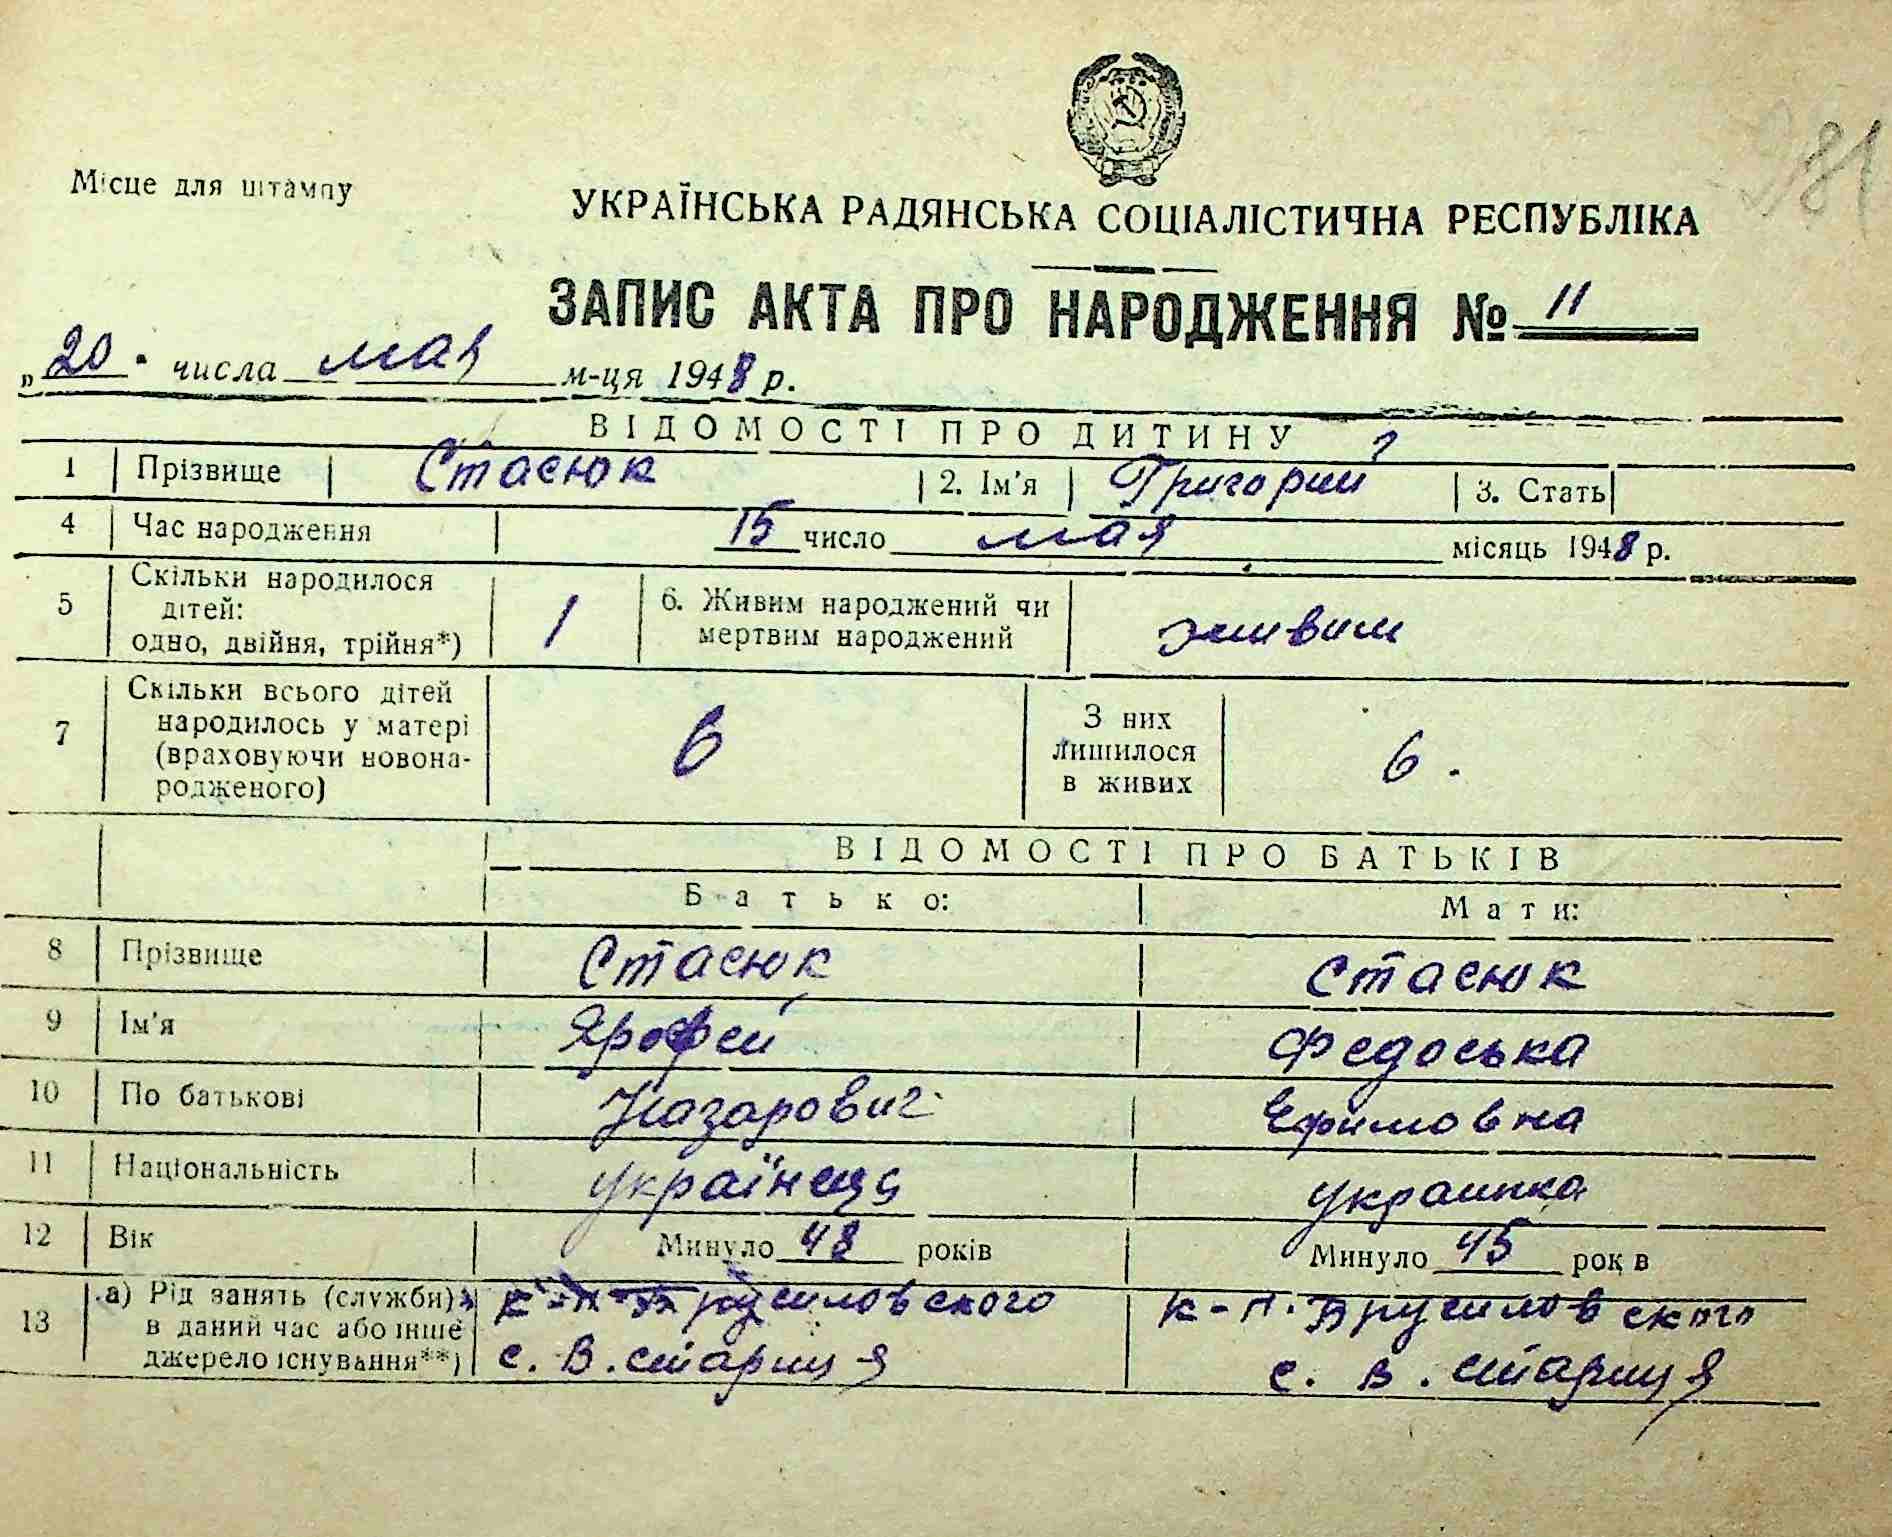 81
Місце для штампу
УКРАЇНСЬКА РАДЯНСЬКА СОЦІАЛІСТИЧНА РЕСПУБЛІКА
ЗАПИС АКТА ПРО НАРОДЖЕННЯ № 11
„20" числа мая м-ця 1948 р.
ВІДОМОСТІ ПРО ДИТИНУ
1 Прізвище Стасюк 2. Ім'я Григорий 3. Стать
4 Час народження 15 число мая місяць 1948 р.
5 Скільки народилося
дітей:
одно, двійня, трійня*) 1 6. Живим народжений чи
мертвим народжений живим
7 Скільки всього дітей
народилось у матері
(враховуючи новона-
родженого) 6 З них
лишилося
в живих 6.
ВІДОМОСТІ ПРО БАТЬКІВ
Батько: Мати:
8 Прізвище Стасюк Стасюк
9 Ім'я Ярофей Федоська
10 По батькові Назарович Ефимовна
11 Національність українець украинка
12 Вік Минуло 48 років Минуло 45 рок в
13 а) Рід занять (служби)
в даний час або інше
джерело існування**) к-п Брусиловского
с. В. старица к-п. Брусиловского
с. В. старица